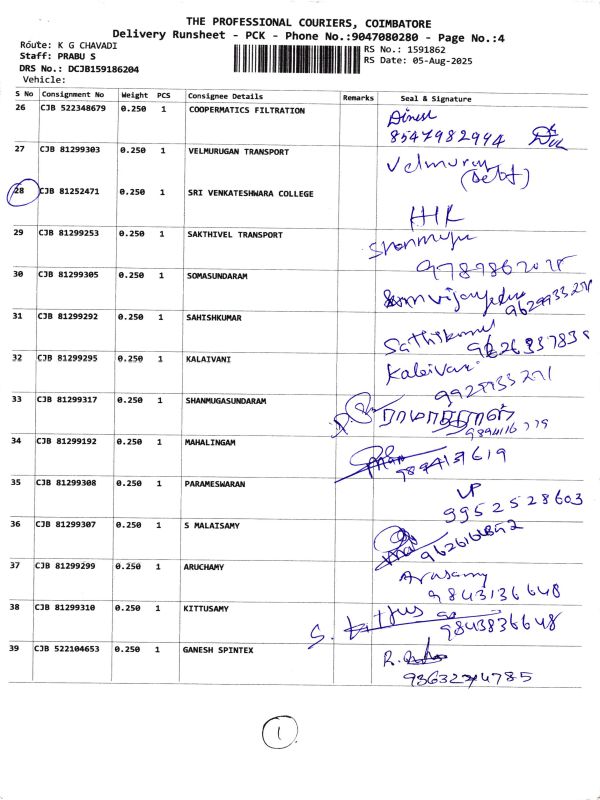 THE PROFESSIONAL COURIERS, COIMBATORE
Delivery Runsheet - PCK - Phone No.:9047080280 - Page No.:4
Route: K G CHAVADI
RS No.: 1591862
Staff: PRABU S
RS Date: 05-Aug-2025
DRS No.: DCJB159186204
Vehicle:
S No Consignment No Weight PCS Consignee Details Remarks Seal & Signature
26 CJB 522348679 0.250 1 COOPERMATICS FILTRATION Dinesh
8547982994
27 CJB 81299303 0.250 1 VELMURUGAN TRANSPORT Velmurugan
28 CJB 81252471 0.250 1 SRI VENKATESHWARA COLLEGE
29 CJB 81299253 0.250 1 SAKTHIVEL TRANSPORT
30 CJB 81299305 0.250 1 SOMASUNDARAM
31 CJB 81299292 0.250 1 SAHISHKUMAR
32 CJB 81299295 0.250 1 KALAIVANI Kalaivani
33 CJB 81299317 0.250 1 SHANMUGASUNDARAM
34 CJB 81299192 0.250 1 MAHALINGAM
35 CJB 81299308 0.250 1 PARAMESWARAN VP
9952528603
36 CJB 81299307 0.250 1 S MALAISAMY
37 CJB 81299299 0.250 1 ARUCHAMY Arusamy
9843136648
38 CJB 81299310 0.250 1 KITTUSAMY S.
9843836648
39 CJB 522104653 0.250 1 GANESH SPINTEX R.
1